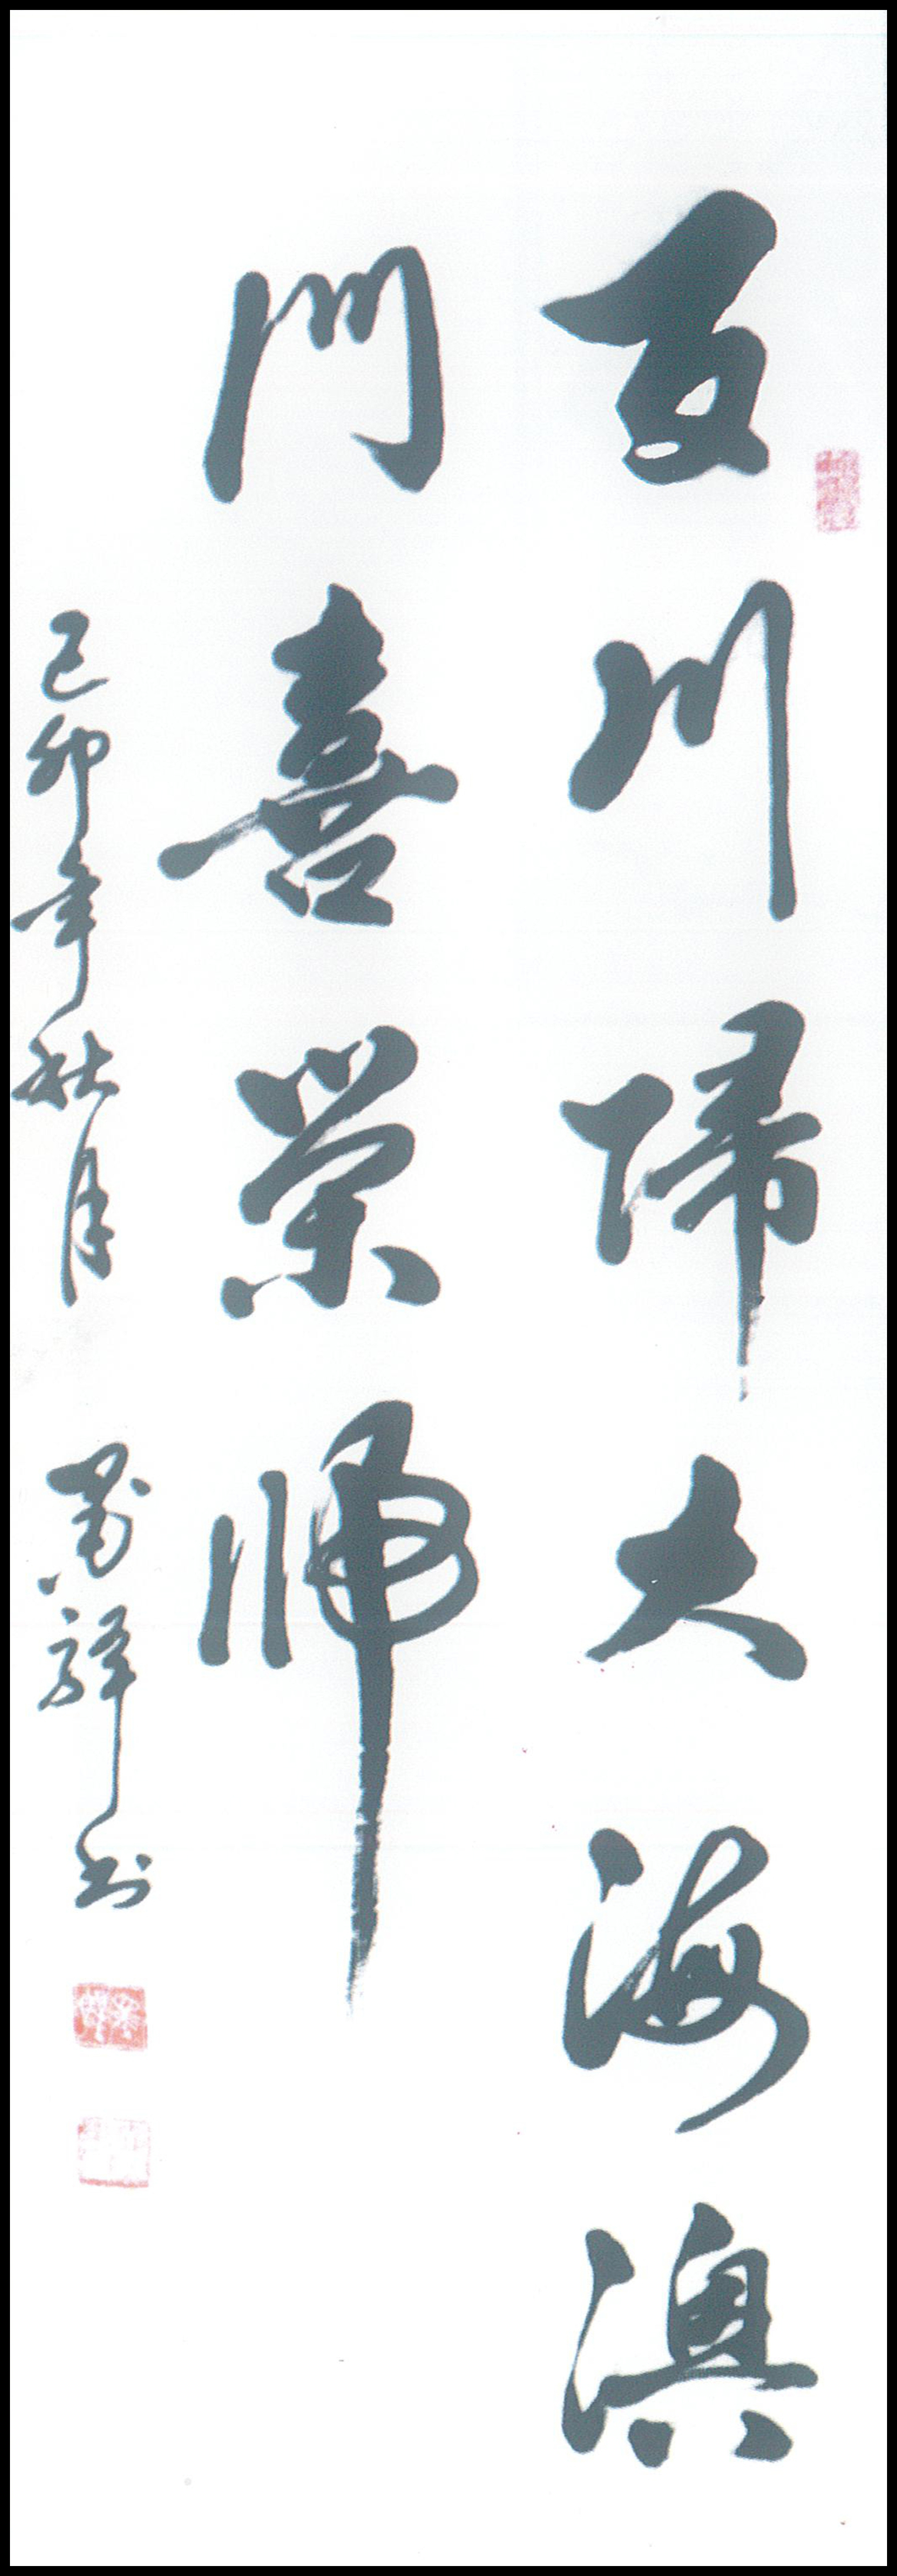 百川歸大海澳
門喜榮歸
己卯年秋月
书